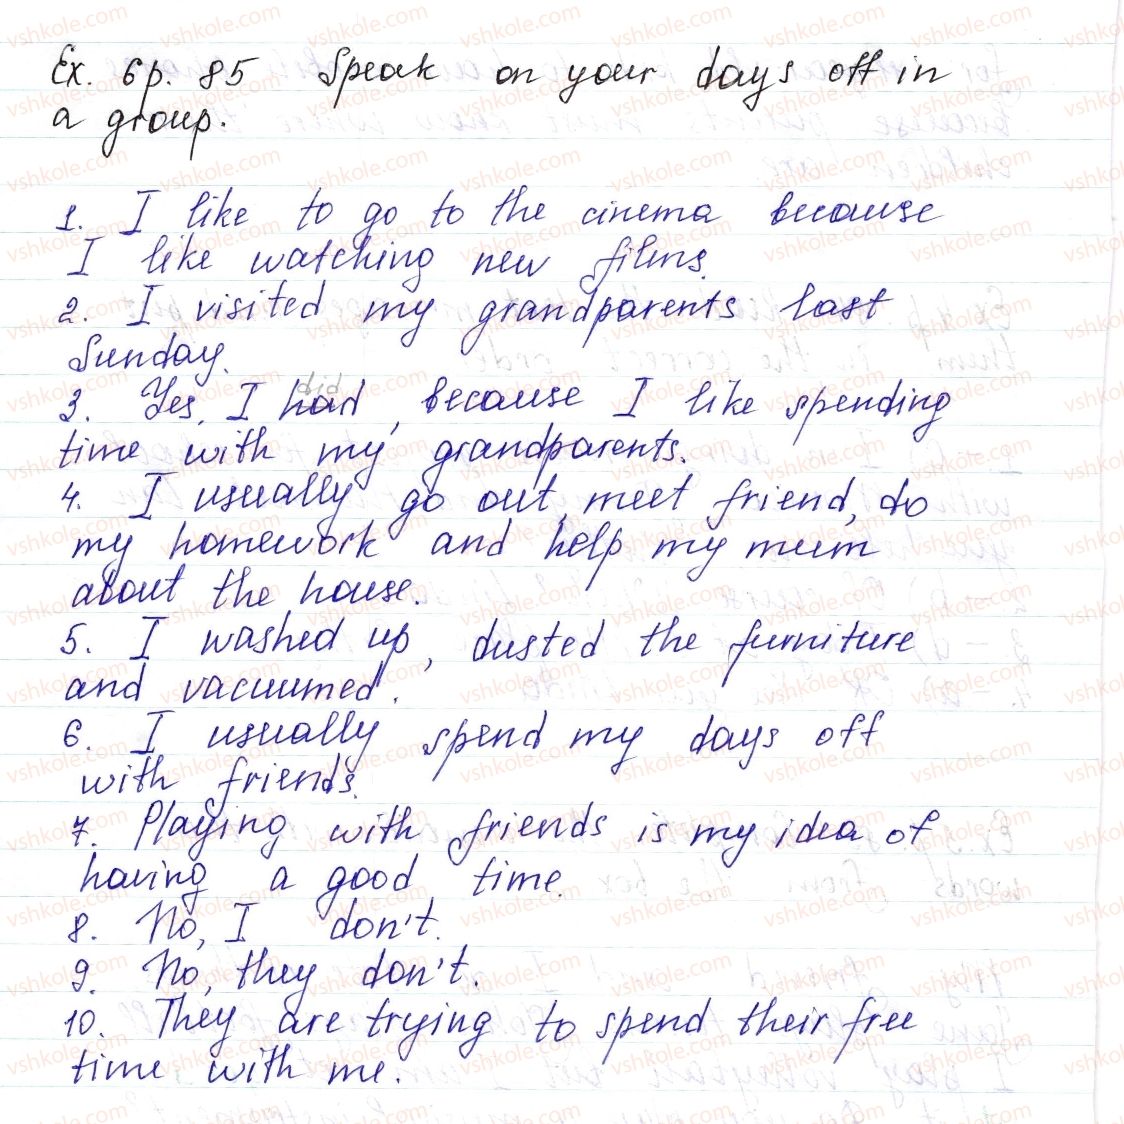 Ex. 6 p. 85 Speak on your days off in
a group.
1. I like to go to the cinema because
I like watching new films.
2. I visited my grandparents last
Sunday.
did
3. Yes, I had, because I like spending
time with my grandparents.
4. I usually go out, meet friend, do
my homework and help my mum
about the house.
5. I washed up, dusted the furniture
and vacuumed.
6. I usually spend my days off
with friends.
7. Playing with friends is my idea of
having a good time.
8. No, I don't.
9. No, they don't.
10. They are trying to spend their free
time with me.
vshkole.com